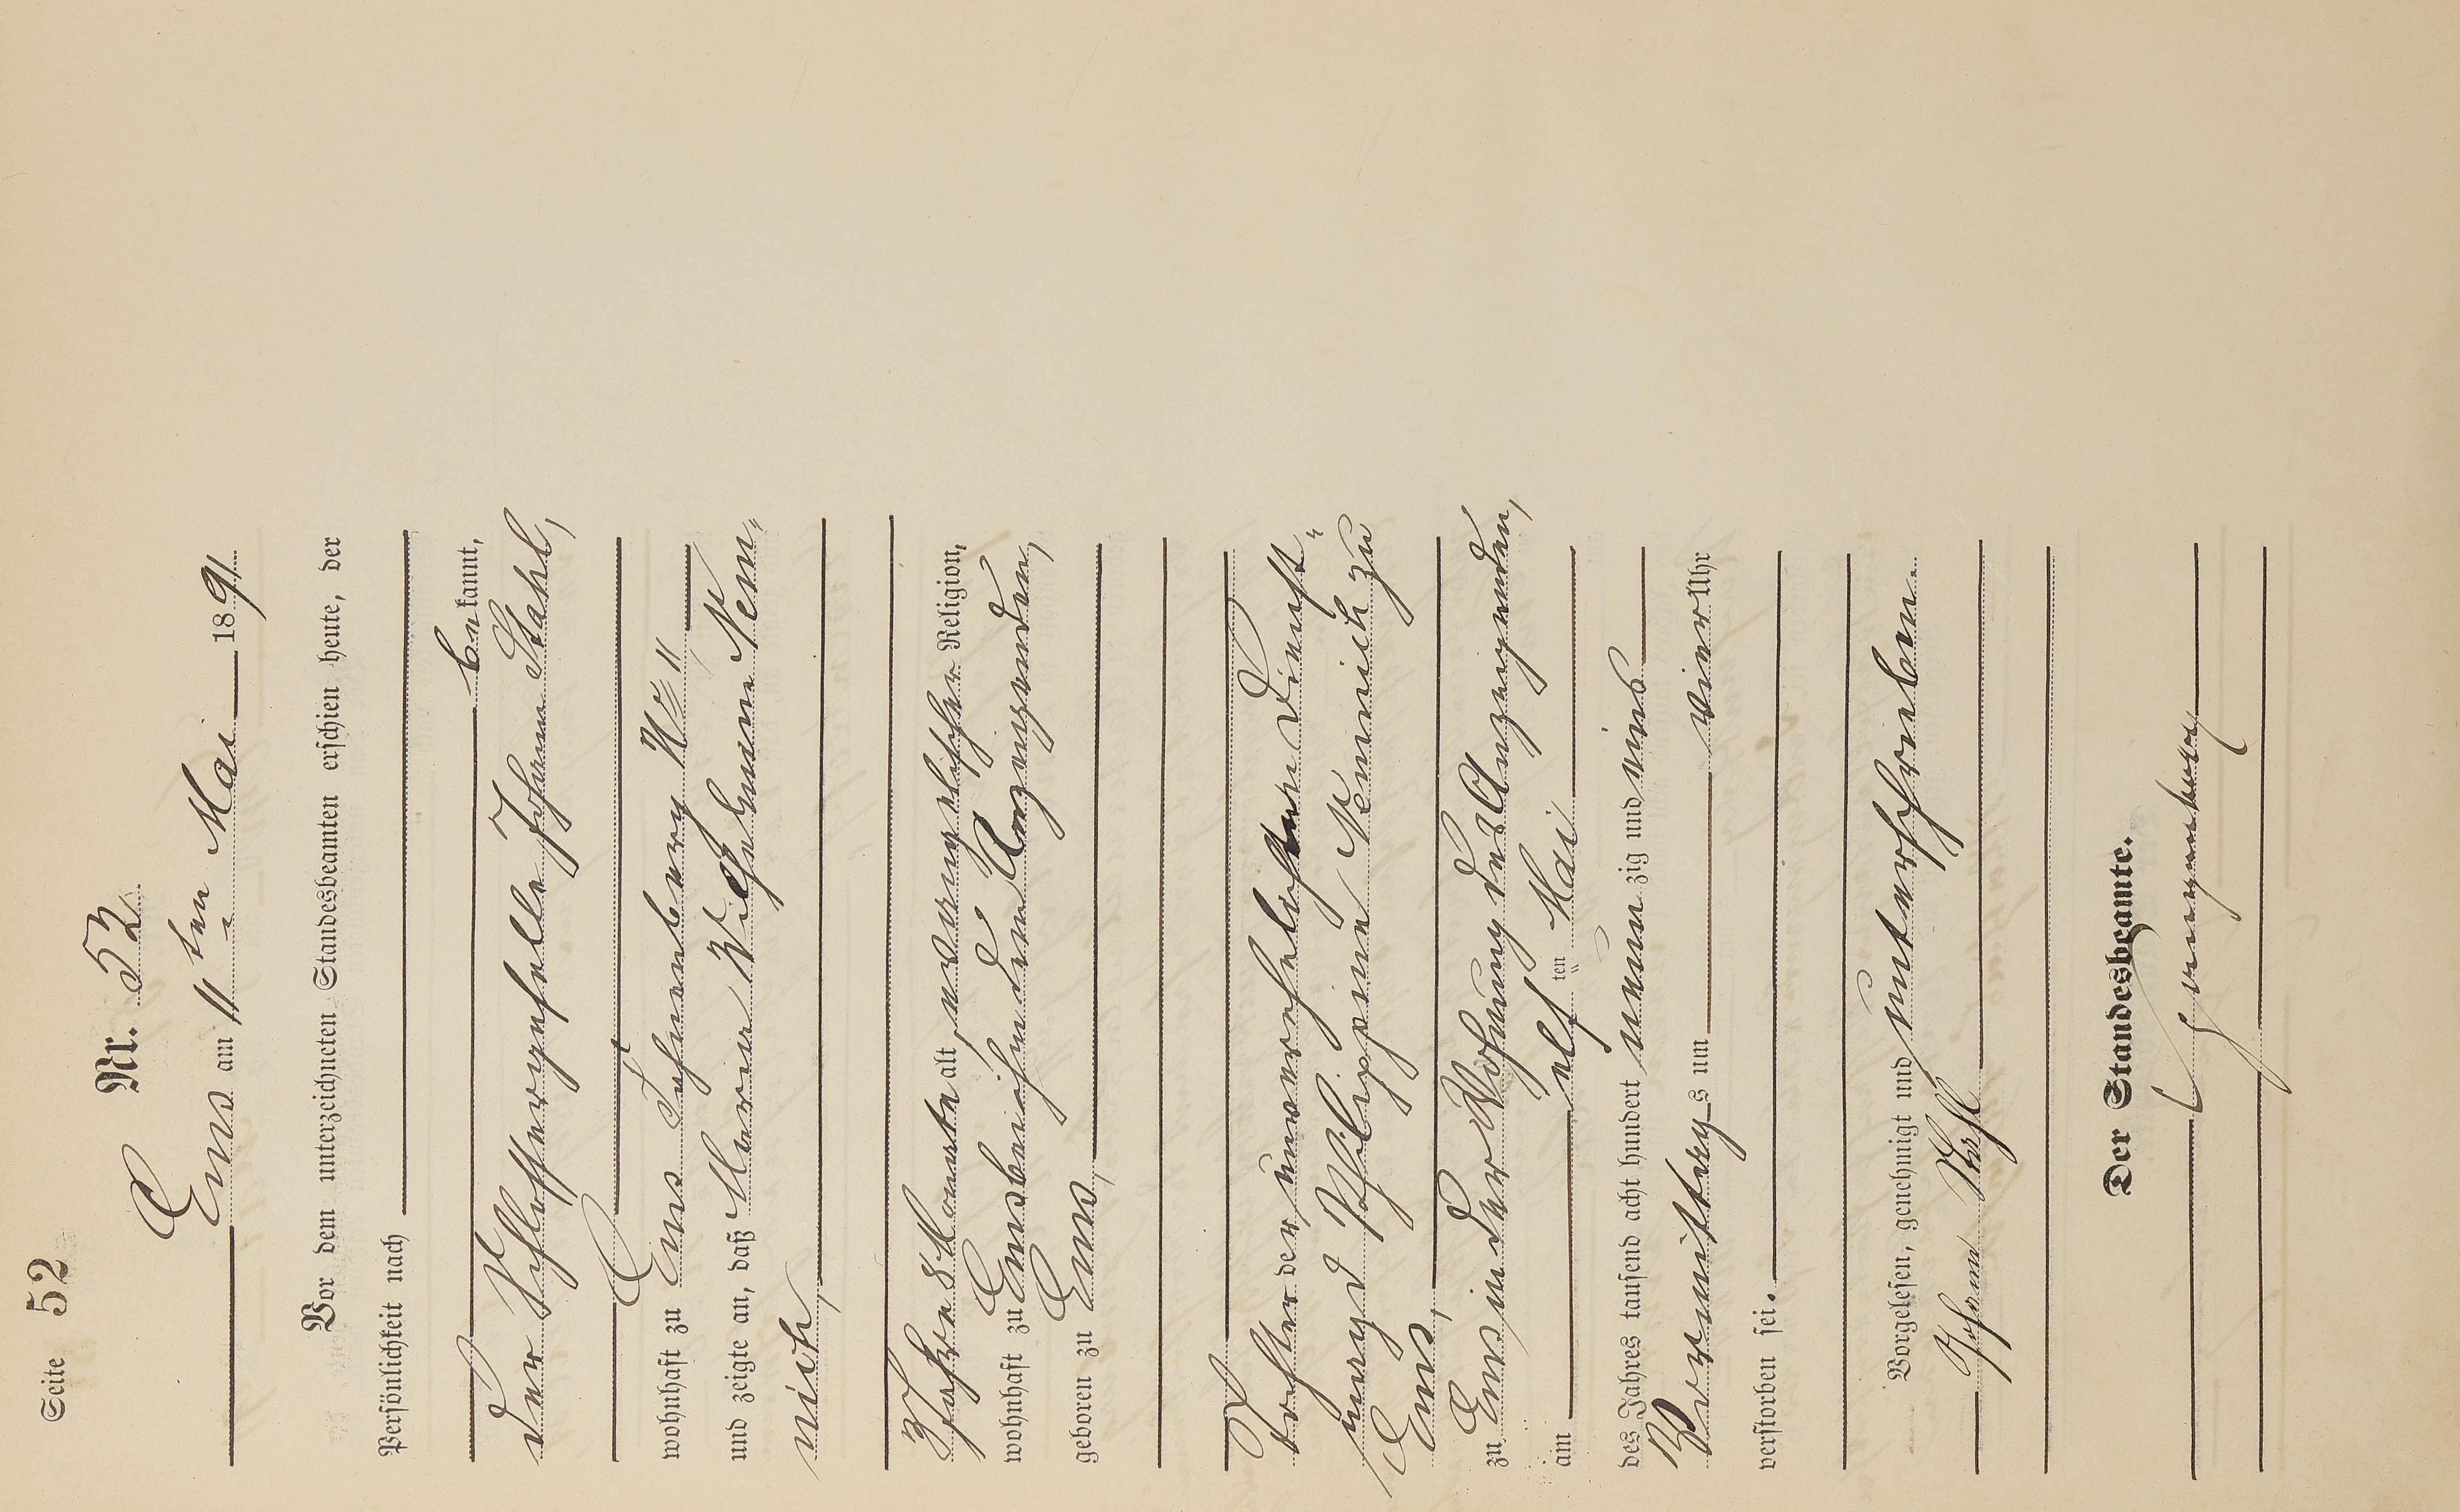 Seite 52
Nr. 52.
Ems am 11ten Mai 1891.
Vor dem unterzeichneten Standesbeamten erschien heute, der
Persönlichkeit nach
bekannt,
der Schlossergeselle Johann Stahl,
wohnhaft zu Ems
und zeigte an, daß Maria Wilhelmine Nem„
nich,
3 Jahre 8 Monate alt, evangelischer Religion,
wohnhaft zu Ems bei ihm dem Anzeigenden,
geboren zu Ems,
Tochter der unverehelichten Dienst„
magd Philippine Nemnich zu
Ems,
zu Ems in der Wohnung des Anzeigenden,
am elf ten Mai
des Jahres tausend acht hundert neun zig und eins
Vormittags um vier Uhr
verstorben sei.
Vorgelesen, genehmigt und unterschrieben.
Johann Stahl
Der Standesbeamte.